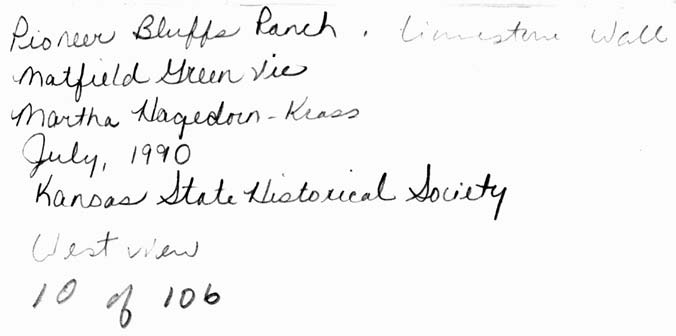 Pioneer Bluffs Ranch. Limestone Wall
Matfield Green Vic
Martha Hagedorn-Krass
July, 1990
Kansas State Historical Society
West view
10 of 106